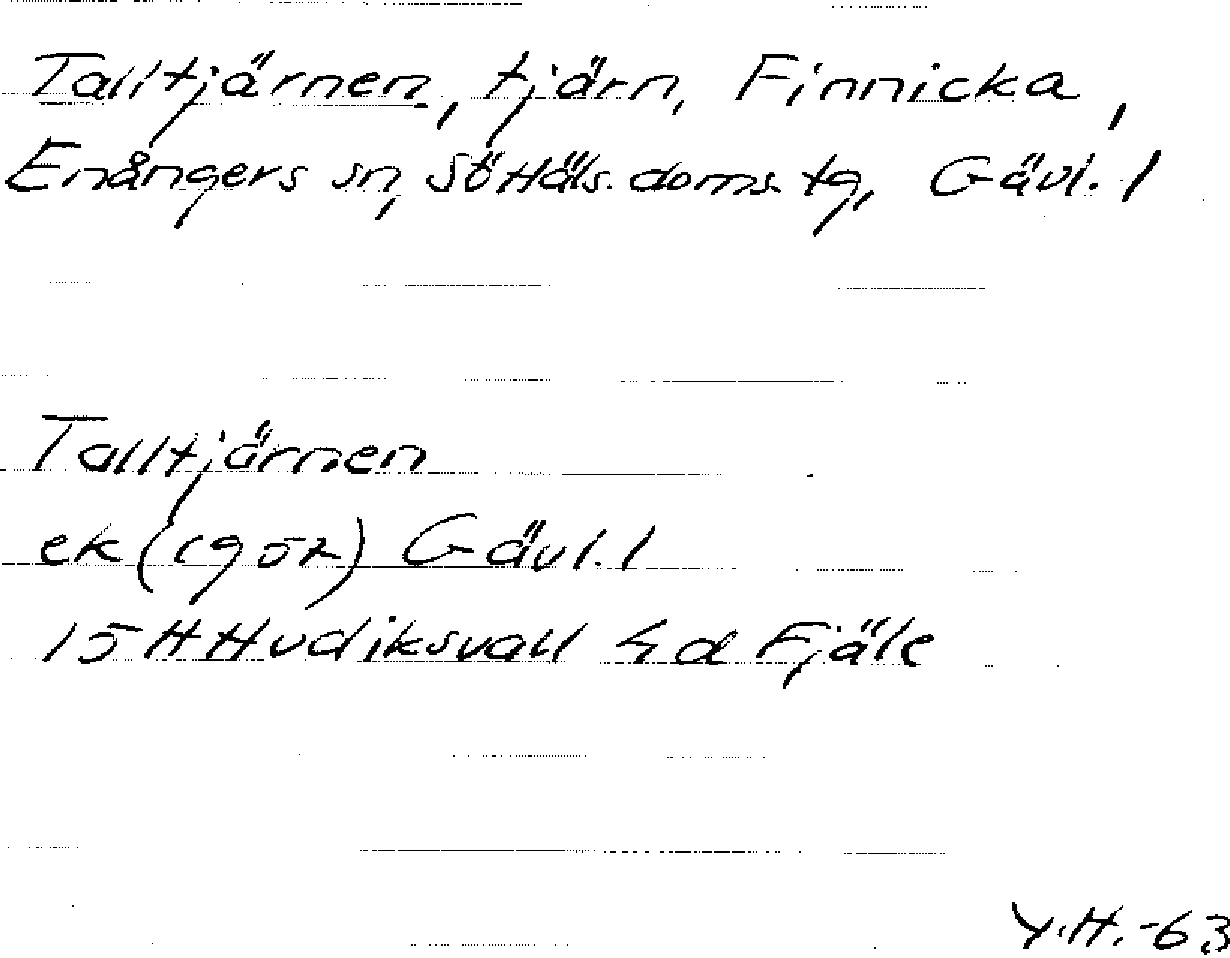 Talltjärnen, tjärn, Finnicka,
Enångers sn, SöHäls. doms. tg, Gävl. l
Talltjärnen
ek (1957) Gävl. l
15H Hudiksvall 4 d Fjäle
Y.H. -63